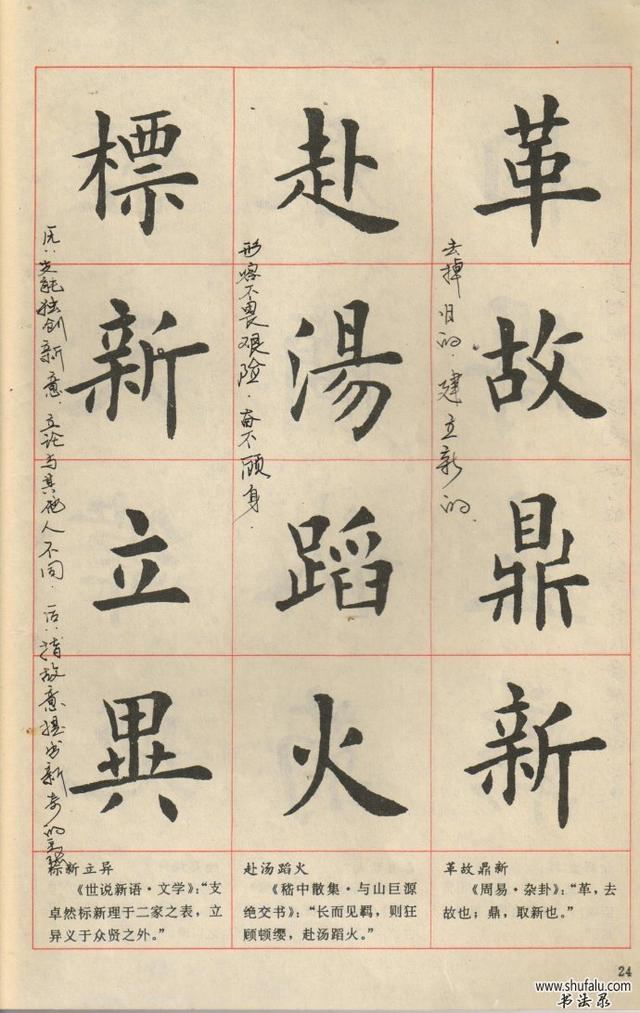 革故鼎新
去掉旧的.建立新的.
革故鼎新
《周易·杂卦》:“革,去
故也;鼎,取新也。”
赴湯蹈火
形容不畏艰险.奋不顾身.
赴汤蹈火
《嵇中散集·与山巨源
绝交书》:“长而见羁,则狂
顾顿缨,赴汤蹈火。”
標新立異
独创新意.立论与其他人不同.后指故意提出新奇的主张
标新立异
《世说新语·文学》:“支
卓然标新理于二家之表,立
异义于众贤之外。”
24
www.shufalu.com
书法录